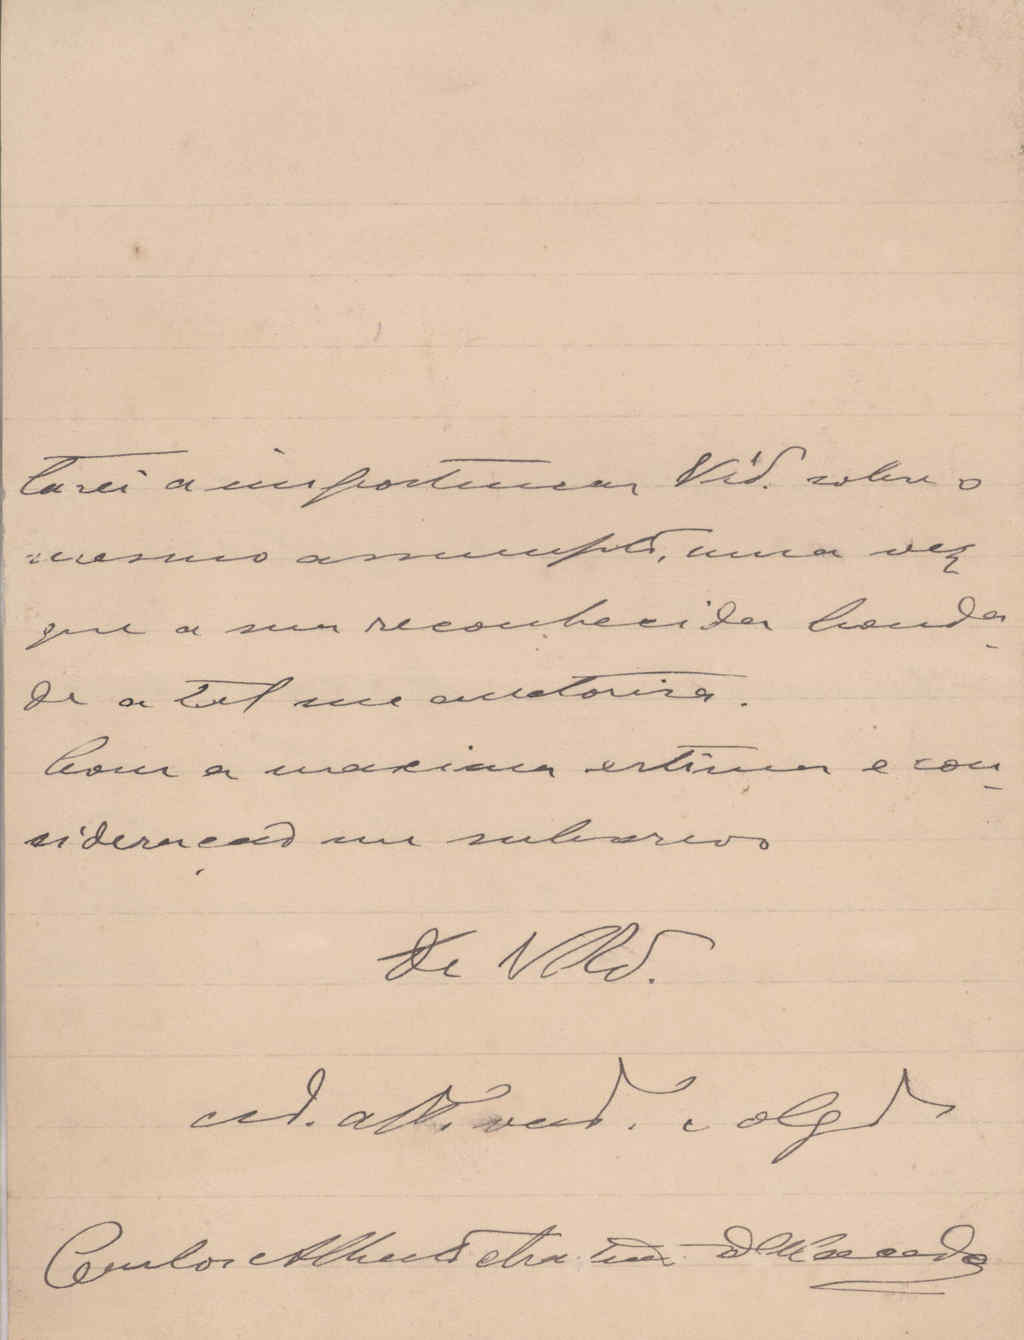 tarei a importunar V.S. sobre o
mesmo assumpto, uma vez
que a sua reconhecida bonda-
de a tal me auctorisa.
Com a maxima estima e con-
sideração me subscrevo
De V.S.
cd. att. vend. e obgd
Carlos Alberto d'Azevedo